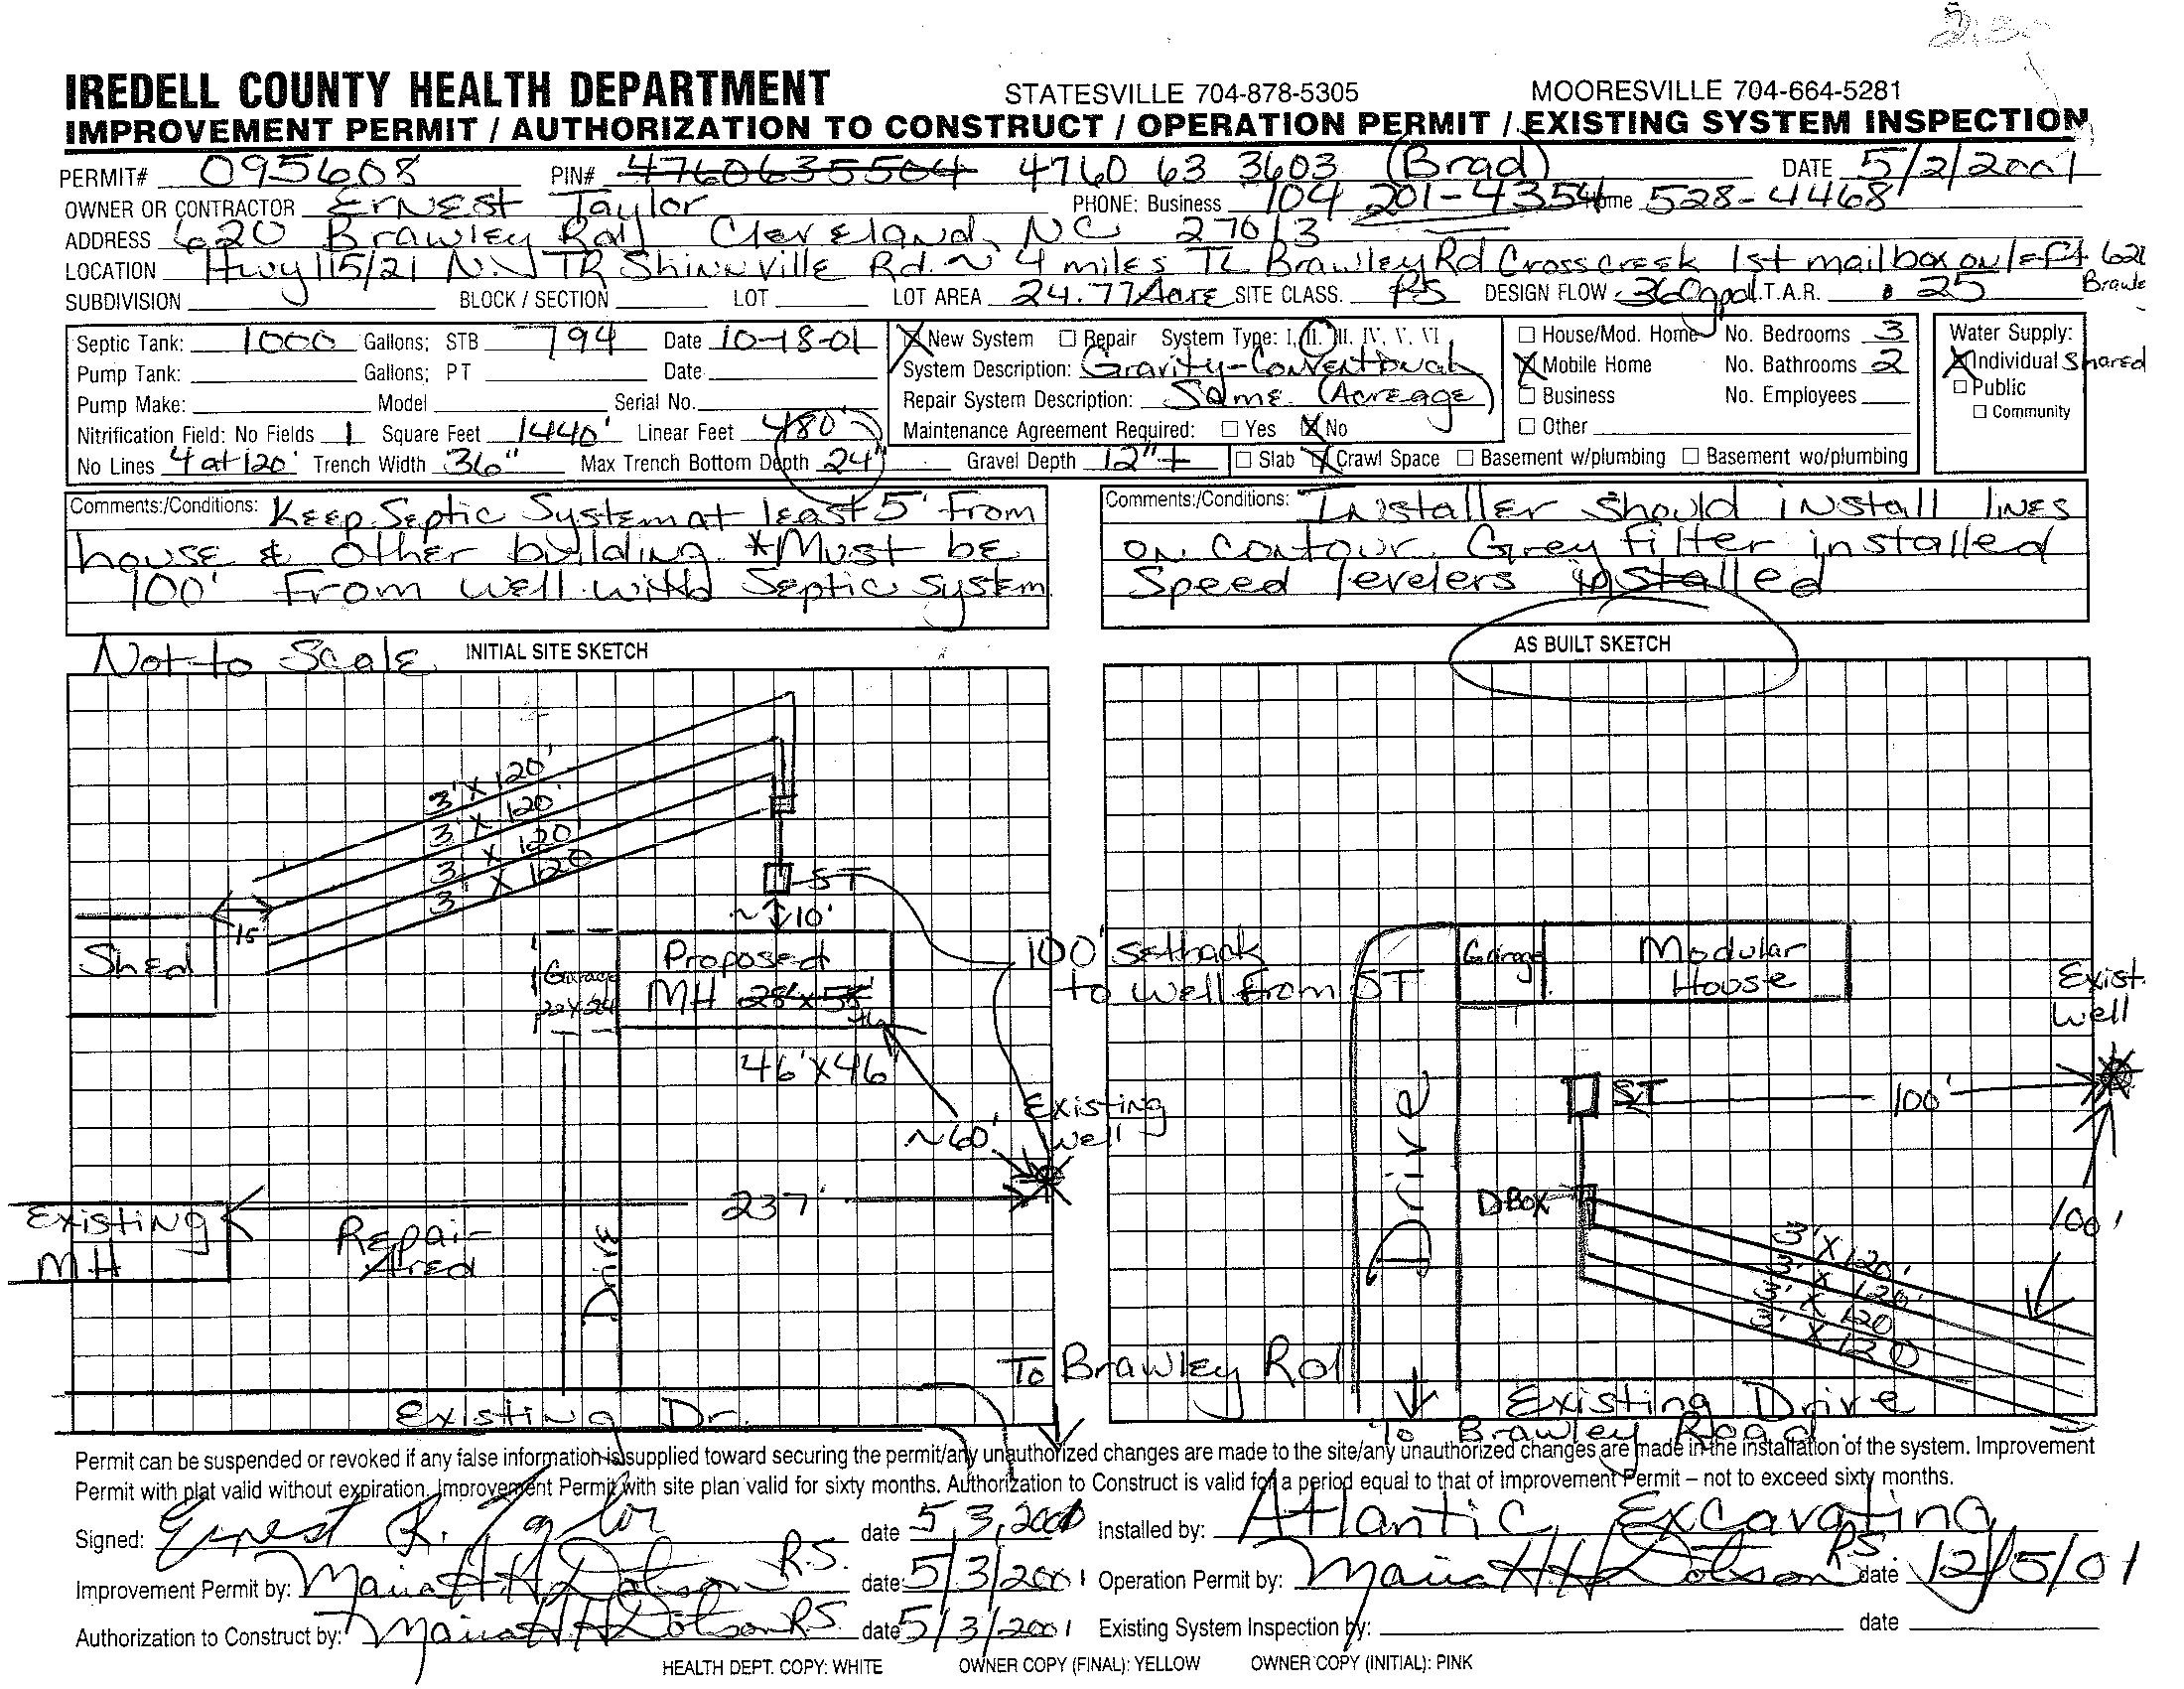 IREDELL COUNTY HEALTH DEPARTMENT STATESVILLE 704-878-5305 MOORESVILLE 704-664-5281
IMPROVEMENT PERMIT / AUTHORIZATION TO CONSTRUCT / OPERATION PERMIT / EXISTING SYSTEM INSPECTION
PERMIT# 095608 PIN# 4760635504 4760 63 3603 (Brad) DATE 5/2/2001
OWNER OR CONTRACTOR Ernest Taylor PHONE: Business 704 201-4354 Home 528-4468
ADDRESS 620 Brawley Rd Cleveland, NC 27013
LOCATION Hwy 115/21 N. TR Shinnville Rd. ~ 4 miles TL Brawley Rd Cross creek 1st mailbox on left
SUBDIVISION BLOCK / SECTION LOT LOT AREA 24.77 Acre SITE CLASS. PS DESIGN FLOW 360gpd L.T.A.R. .25
Septic Tank: 1000 Gallons; STB 794 Date 10-18-01
Pump Tank: Gallons; PT Date
Pump Make: Model Serial No.
Nitrification Field: No Fields 1 Square Feet 1440' Linear Feet 480'
No Lines 4 at 120' Trench Width 36" Max Trench Bottom Depth 24" Gravel Depth 12"+
X New System ☐ Repair System Type: I, II, III, IV, V, VI
System Description: Gravity-Conventional
Repair System Description: Same (Acreage)
Maintenance Agreement Required: ☐ Yes X No
☐ Slab X Crawl Space ☐ Basement w/plumbing ☐ Basement wo/plumbing
☐ House/Mod. Home No. Bedrooms 3
X Mobile Home No. Bathrooms 2
☐ Business No. Employees
☐ Other
Water Supply:
X Individual Shared
☐ Public
☐ Community
Comments:/Conditions: Keep Septic System at least 5' From
house & other building *Must be
100' From well with Septic System
Comments:/Conditions: Installer should install lines
on contour. Grey Filter installed
Speed levelers installed
Not to Scale INITIAL SITE SKETCH
3' X 120'
3' X 120'
3' X 120'
3' X 120
ST
~ 10'
15'
Shed
Garage
Proposed
MH 28'x58'
46'x46'
100' setback
to well from ST
~60'
Existing
Well
237'
Existing
MH
Repair
Area
Drive
Existing Dr.
To Brawley Rd
AS BUILT SKETCH
Garage
Modular
House
Exist.
Well
ST
100'
100'
DBOX
Drive
3' X 120'
3' X 120'
3' X 120
3' X 120
Existing Drive
To Brawley Road
Permit can be suspended or revoked if any false information is supplied toward securing the permit/any unauthorized changes are made to the site/any unauthorized changes are made in the installation of the system. Improvement
Permit with plat valid without expiration. Improvement Permit with site plan valid for sixty months. Authorization to Construct is valid for a period equal to that of Improvement Permit – not to exceed sixty months.
Signed: Ernest R. Taylor date 5,3,2001 Installed by: Atlantic Excavating
Improvement Permit by: R.S. date: 5/3/2001 Operation Permit by: RS date 12/5/01
Authorization to Construct by: R.S. date 5/3/2001 Existing System Inspection by: date
HEALTH DEPT. COPY: WHITE OWNER COPY (FINAL): YELLOW OWNER COPY (INITIAL): PINK